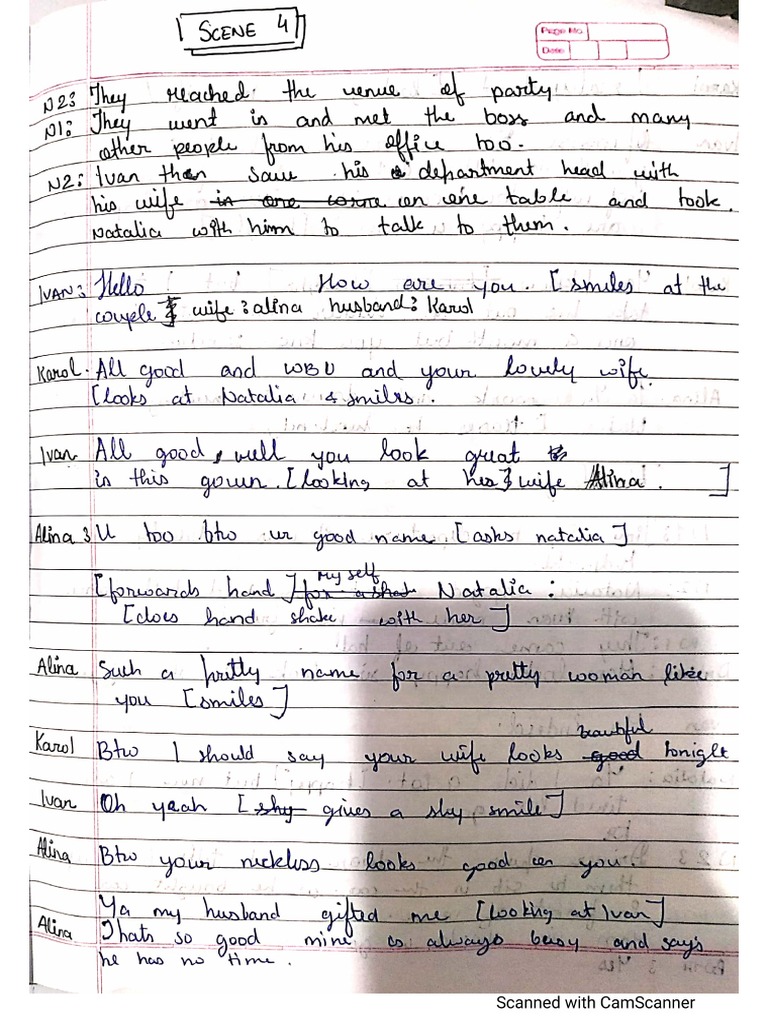 SCENE 4
Page No.
Date
N2: They reached the venue of party
N1: They went in and met the boss and many
other people from his office too.
N2: Ivan then saw his department head with
his wife in one corna on one table and took
Natalia with him to talk to them.
IVAN: Hello How are you. [smiles at the
couple] wife: alina husband: Karol
Karol. All good and WBU and your lovely wife.
[looks at Natalia & smiles.
Ivan All good, well you look great
in this gown. [looking at his wife Alina. ]
Alina: U too btw ur good name [asks natalia]
my self
[forwards hand] for a shake Natalia:
[does hand shake with her]
Alina Such a pretty name for a pretty woman like
you [smiles]
beautiful
Karol Btw I should say your wife looks good tonight
Ivan Oh yeah [shy gives a shy smile]
Alina Btw your neckless looks good on you
Ya my husband gifted me [looking at Ivan]
Alina Thats so good mine is always busy and says
he has no time.
Scanned with CamScanner